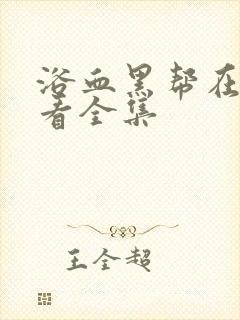 浴血黑帮在
看全集
王全超